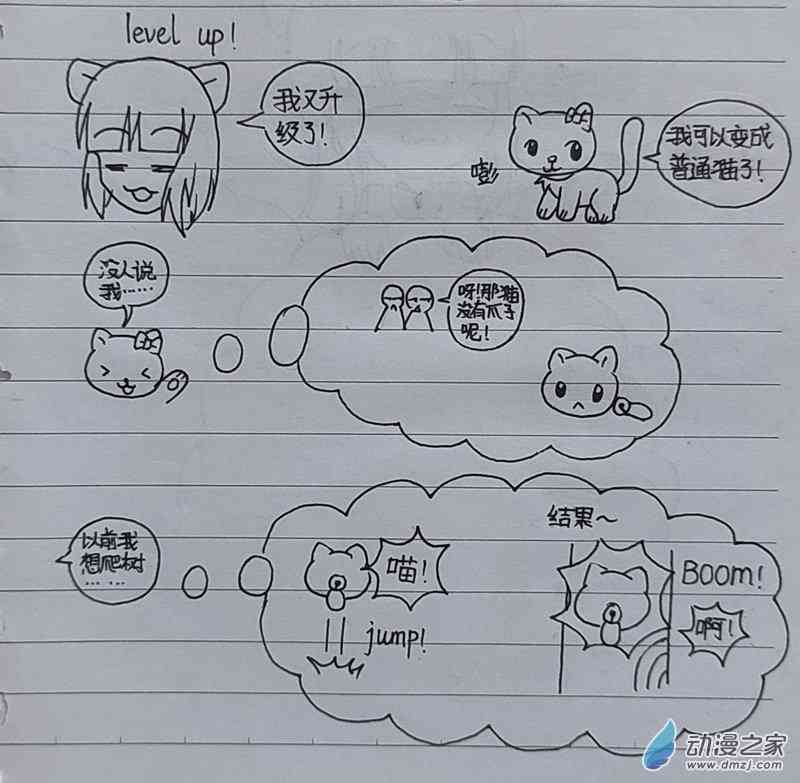 level up!
我又升
级了!
嘭
我可以变成
普通猫了!
没人说
我……
呀!那猫
没有爪子
呢!
以前我
想爬树
……
喵!
jump!
结果~
Boom!
啊!
动漫之家
www.dmzj.com